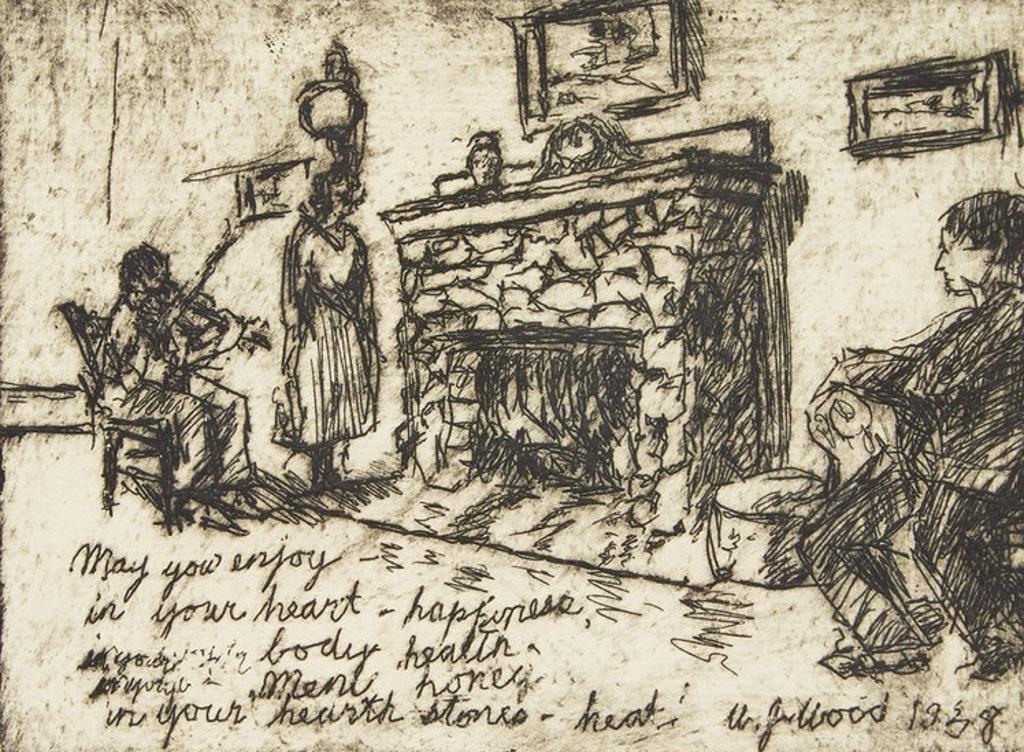 May you enjoy -
in your heart - happiness,
in your body health -
in your - Menu honey
in your hearth stones - heat!
W. J. Wood 1928